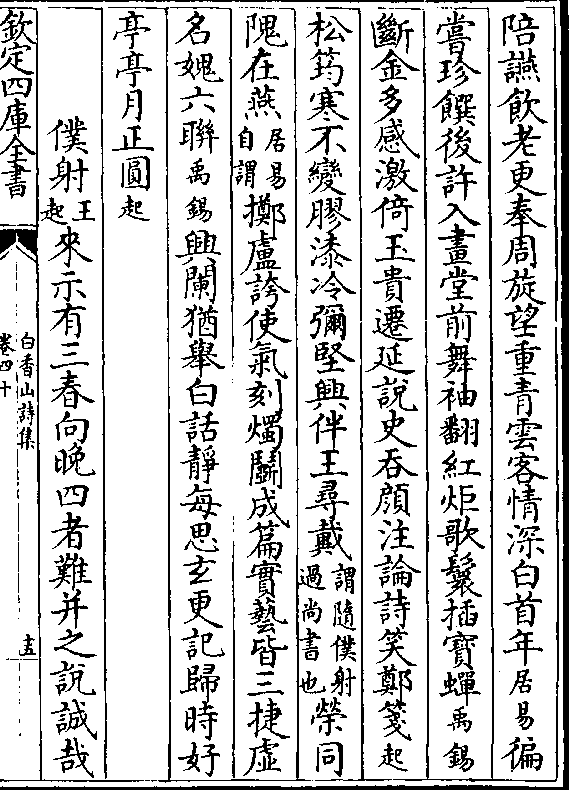 陪讌飲老更奉周旋望重青雲客情深白首年居易徧
嘗珍饌後許入畫堂前舞袖翻紅炬歌鬟插寶蟬禹錫
斷金多感激倚玉貴遷延說史吞顔注論詩笑鄭箋起
松筠寒不變膠漆冷彌堅興伴王尋戴謂隨僕射過尚書也榮同
隗在燕居易自謂擲盧誇使氣刻燭鬭成篇實藝皆三捷虛
名媿六聯禹錫興闌猶舉白話靜每思玄更記歸時好
亭亭月正圓起
僕射王起來示有三春向晚四者難并之說誠哉
欽定四庫全書
白香山詩集
卷四十
十五